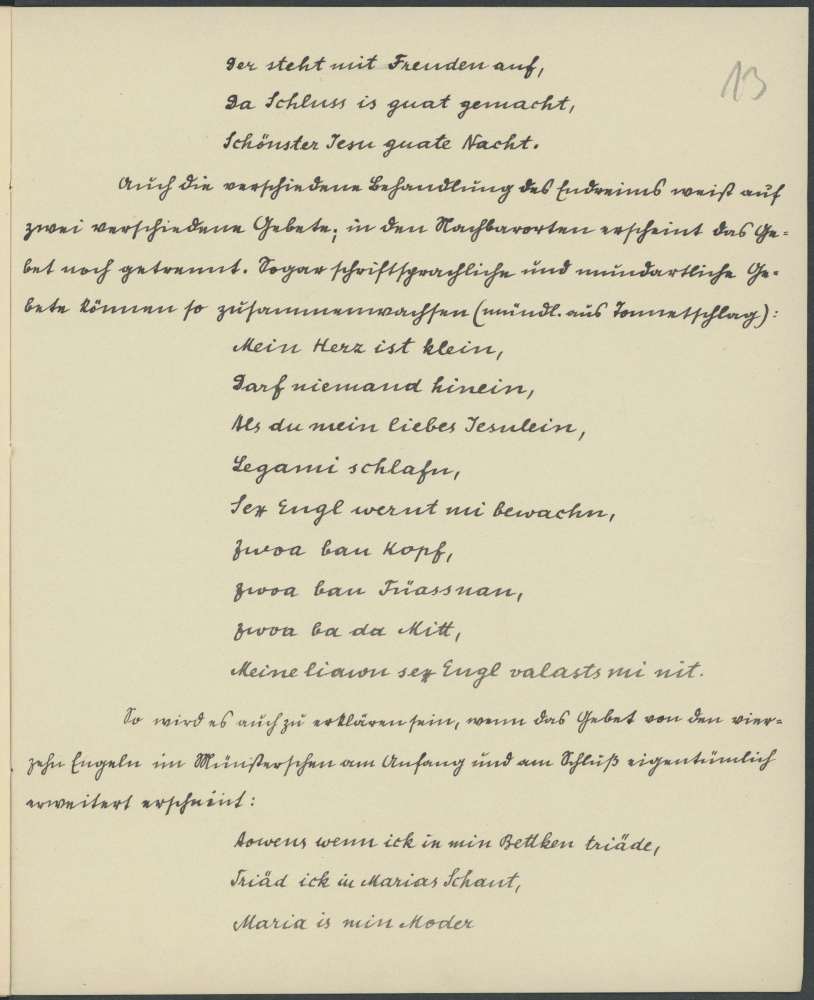 13
Der steht mit Freuden auf,
Da Schluss is guat gemacht,
Schönster Jesu guate Nacht.
Auch die verschiedene Behandlung des Endreims weist auf
zwei verschiedene Gebete; in den Nachbarorten erscheint das Ge-
bet noch getrennt. Sogar schriftsprachliche und mundartliche Ge-
bete können so zusammenwachsen (mündl. aus Tonnetschlag):
Mein Herz ist klein,
Darf niemand hinein,
Als du mein liebes Jesulein,
Legami schlafn,
Sex Engl wernt mi bewachn,
Zwoa ban Kopf,
Zwoa ban Füassnan,
Zwoa ba da Mitt,
Meine liawn sex Engl valasts mi nit.
So wird es auch zu erklären sein, wenn das Gebet von den vier-
zehn Engeln im Münsterschen am Anfang und am Schluß eigentümlich
erweitert erscheint:
Aowens wenn ick in min Bettken triäde,
Triäd ick in Marias Schaut,
Maria is min Moder